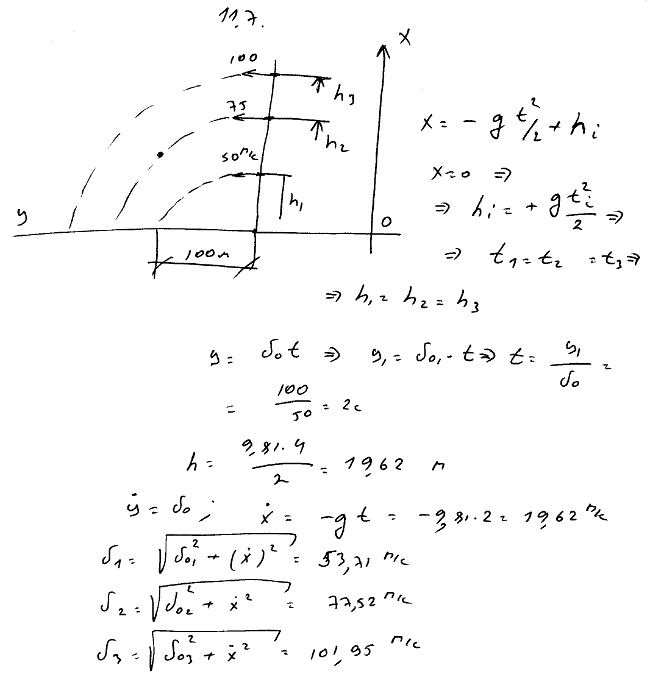 11.7.
x
100
h₃
75
h₂
50 м/с
h₁
y
0
100м
x = - g t²/2 + hᵢ
x=0 ⇒
⇒ hᵢ = + g tᵢ²/2 ⇒
⇒ t₁ = t₂ = t₃ ⇒
⇒ h₁ = h₂ = h₃
y = v₀t ⇒ y₁ = v₀₁·t ⇒ t = y₁/v₀ =
= 100/50 = 2c
h = 9,81.4/2 = 19,62 м
ẏ = v₀ ; ẋ = -gt = -9,81.2 = 19,62 м/с
v₁ = √(v₀₁² + (ẋ)²) = 53,71 м/с
v₂ = √(v₀₂² + ẋ²) = 77,52 м/с
v₃ = √(v₀₃² + ẋ²) = 101,95 м/с